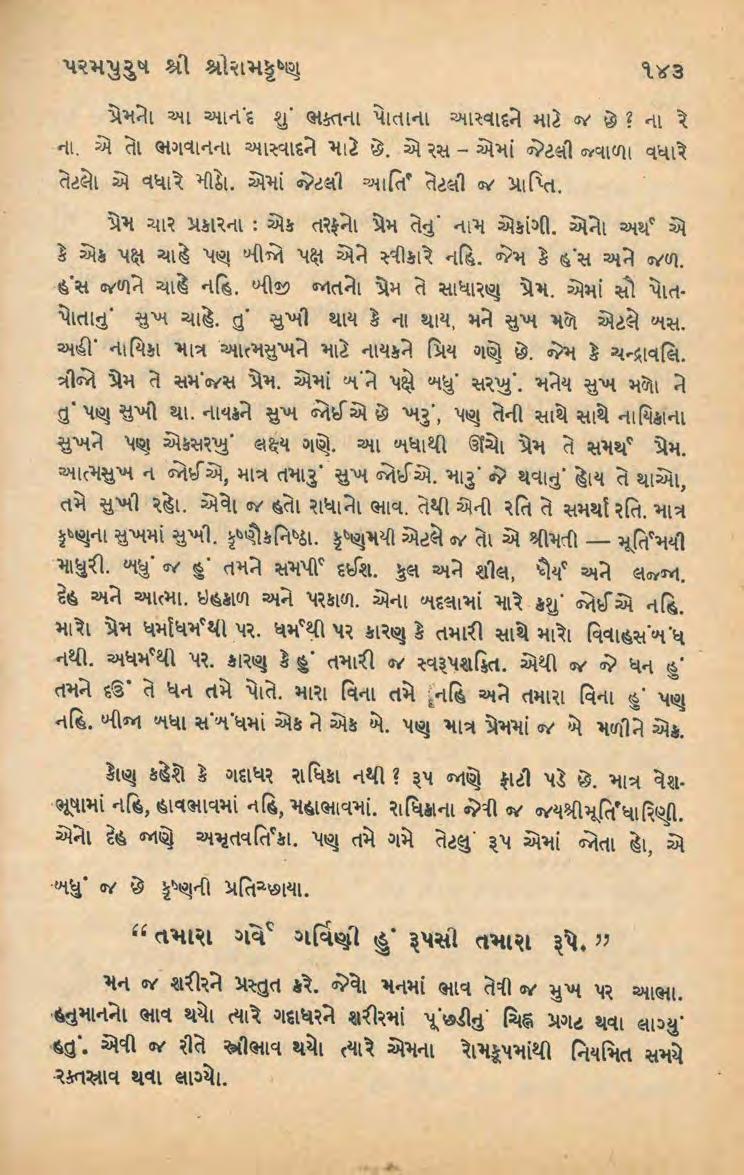 પરમપુરુષ શ્રી શ્રીરામકૃષ્ણ ૧૪૩
પ્રેમનો આ આનંદ શું ભક્તના પોતાના આસ્વાદને માટે જ છે ? ના રે
ના. એ તો ભગવાનના આસ્વાદને માટે છે. એ રસ – એમાં જેટલી જ્વાળા વધારે
તેટલો એ વધારે મીઠો. એમાં જેટલી આર્તિ તેટલી જ પ્રાપ્તિ.
પ્રેમ ચાર પ્રકારના : એક તરફનો પ્રેમ તેનું નામ એકાંગી. એનો અર્થ એ
કે એક પક્ષ ચાહે પણ બીજો પક્ષ એને સ્વીકારે નહિ. જેમ કે હંસ અને જળ.
હંસ જળને ચાહે નહિ. બીજી જાતનો પ્રેમ તે સાધારણ પ્રેમ. એમાં સૌ પોત-
પોતાનું સુખ ચાહે. તું સુખી થાય કે ના થાય, મને સુખ મળે એટલે બસ.
અહીં નાયિકા માત્ર આત્મસુખને માટે નાયકને પ્રિય ગણે છે. જેમ કે ચન્દ્રાવલિ.
ત્રીજો પ્રેમ તે સમંજસ પ્રેમ. એમાં બંને પક્ષે બધું સરખું. મનેય સુખ મળો ને
તું પણ સુખી થા. નાયકને સુખ જોઈએ છે ખરું, પણ તેની સાથે સાથે નાયિકાના
સુખને પણ એકસરખું લક્ષ્ય ગણે. આ બધાથી ઊંચો પ્રેમ તે સમર્થ પ્રેમ.
આત્મસુખ ન જોઈએ, માત્ર તમારું સુખ જોઈએ. મારું જે થવાનું હોય તે થાઓ,
તમે સુખી રહો. એવો જ હતો રાધાનો ભાવ. તેથી એની રતિ તે સમર્થા રતિ. માત્ર
કૃષ્ણના સુખમાં સુખી. કૃષ્ણૈકનિષ્ઠા. કૃષ્ણમયી એટલે જ તો એ શ્રીમતી — મૂર્તિમયી
માધુરી. બધું જ હું તમને સમર્પી દઈશ. કુલ અને શીલ, ધૈર્ય અને લજ્જા.
દેહ અને આત્મા. ઇહકાળ અને પરકાળ. એના બદલામાં મારે કશું જોઈએ નહિ.
મારો પ્રેમ ધર્માધર્મથી પર. ધર્મથી પર કારણ કે તમારી સાથે મારો વિવાહસંબંધ
નથી. અધર્મથી પર. કારણ કે હું તમારી જ સ્વરૂપશક્તિ. એથી જ જે ધન હું
તમને દઉં તે ધન તમે પોતે. મારા વિના તમે નહિ અને તમારા વિના હું પણ
નહિ. બીજા બધા સંબંધમાં એક ને એક બે. પણ માત્ર પ્રેમમાં જ બે મળીને એક.
કોણ કહેશે કે ગદાધર રાધિકા નથી ? રૂપ જાણે ફાટી પડે છે. માત્ર વેશ-
ભૂષામાં નહિ, હાવભાવમાં નહિ, મહાભાવમાં. રાધિકાના જેવી જ જયશ્રીમૂર્તિધારિણી.
એનો દેહ જાણે અમૃતવર્તિકા. પણ તમે ગમે તેટલું રૂપ એમાં જોતા હો, એ
બધું જ છે કૃષ્ણની પ્રતિચ્છાયા.
“ તમારા ગર્વે ગર્વિણી હું રૂપસી તમારા રૂપે. ”
મન જ શરીરને પ્રસ્તુત કરે. જેવો મનમાં ભાવ તેવી જ મુખ પર આભા.
હનુમાનનો ભાવ થયો ત્યારે ગદાધરને શરીરમાં પૂંછડીનું ચિહ્ન પ્રગટ થવા લાગ્યું
હતું. એવી જ રીતે સ્ત્રીભાવ થયો ત્યારે એમના રોમકૂપમાંથી નિયમિત સમયે
રક્તસ્રાવ થવા લાગ્યો.